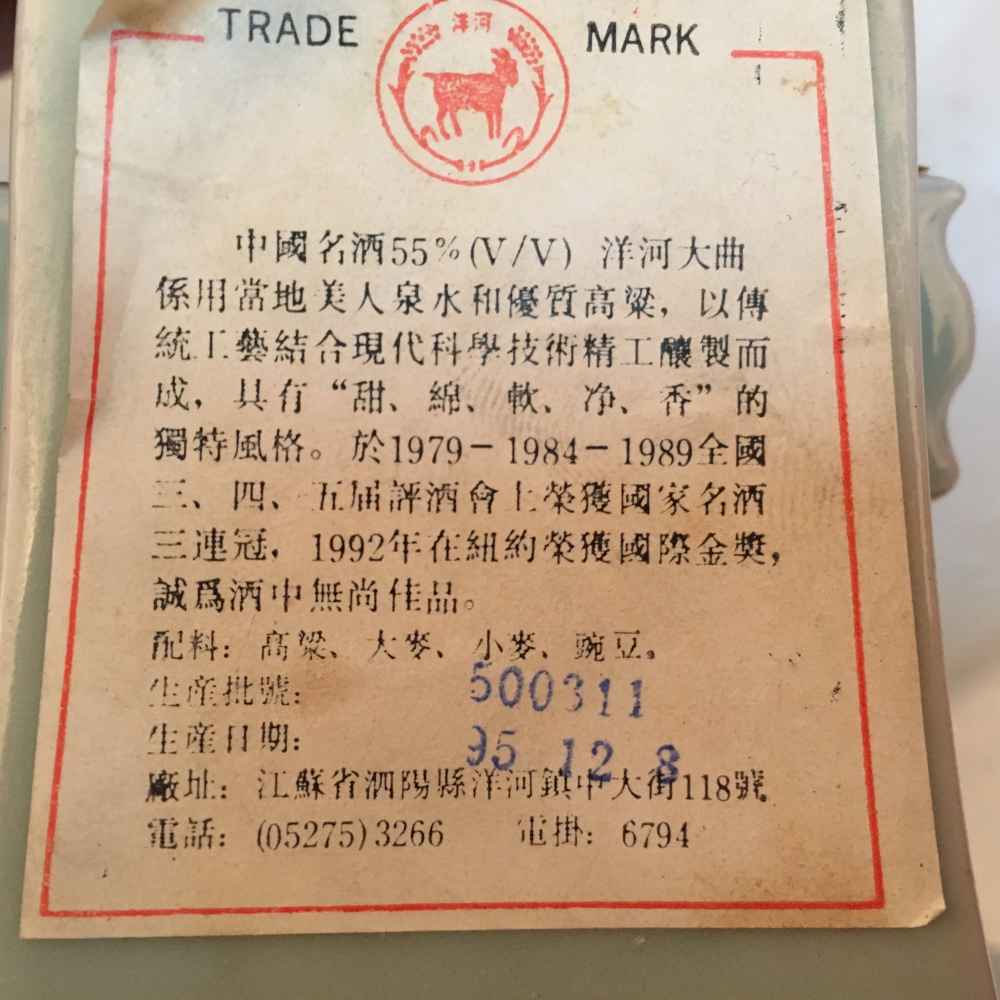 TRADE 洋河 MARK
中國名酒55%(V/V) 洋河大曲
係用當地美人泉水和優質高粱，以傳
統工藝結合現代科學技術精工釀製而
成，具有“甜、綿、軟、净、香”的
獨特風格。於1979－1984－1989全國
三、四、五届評酒會上榮獲國家名酒
三連冠，1992年在紐約榮獲國際金獎，
誠爲酒中無尚佳品。
配料：高粱、大麥、小麥、豌豆。
生産批號：500311
生産日期：95 12 8
廠址：江蘇省泗陽縣洋河鎮中大街118號
電話：(05275)3266 電掛：6794